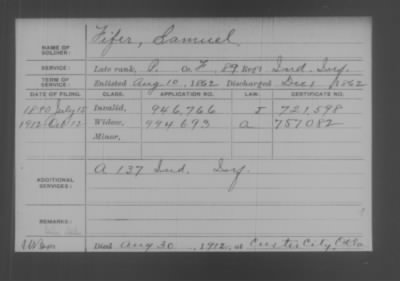 NAME OF SOLDIER: Fifer, Samuel.
SERVICE: Late rank, P. Co. H, 89 Reg't Ind. Inf.
TERM OF SERVICE: Enlisted Aug. 10, 1862 Discharged Dec 1, 1862
DATE OF FILING. CLASS. APPLICATION NO. LAW. CERTIFICATE NO.
1890 July 15 Invalid, 946,766 J 721,598
1912 Oct 12 Widow, 994693 a 757082
Minor,
ADDITIONAL SERVICES: A 137 Ind. Inf.
REMARKS:
Died Aug 30, 1912, at Custer City, Okla